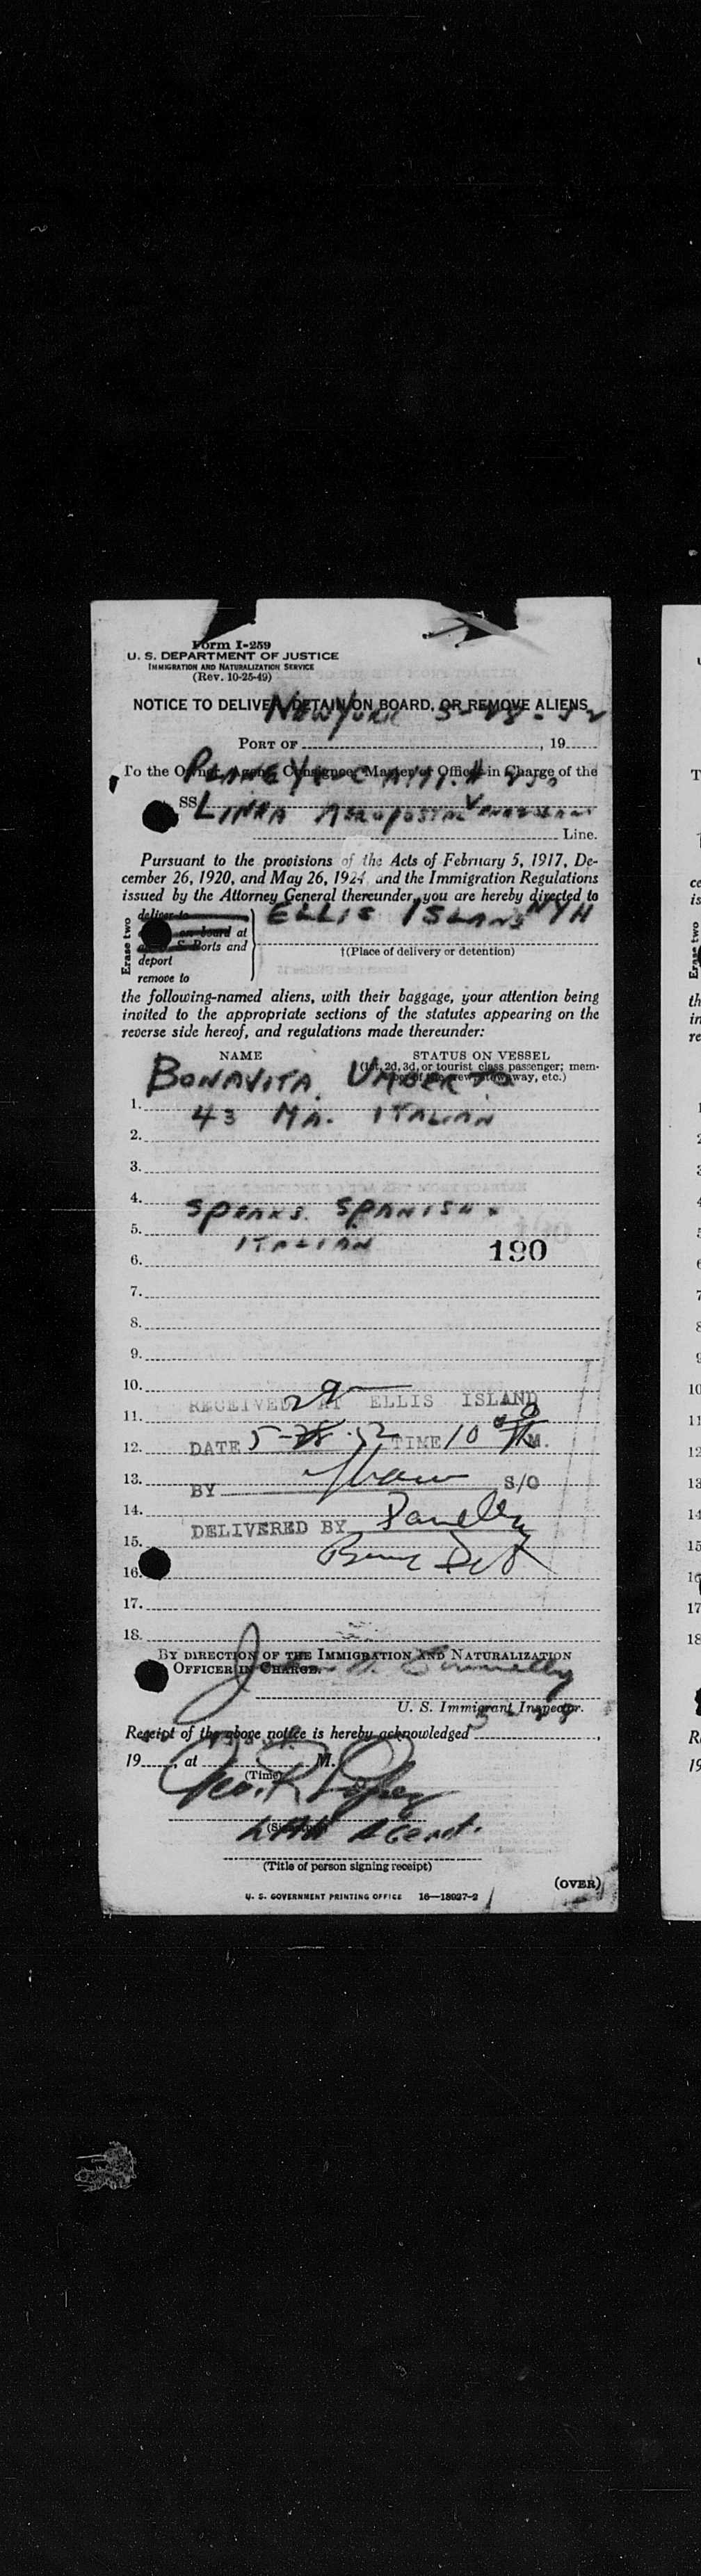 Form I-259
U. S. DEPARTMENT OF JUSTICE
IMMIGRATION AND NATURALIZATION SERVICE
(Rev. 10-25-49)
NOTICE TO DELIVER, DETAIN ON BOARD, OR REMOVE ALIENS
New York 5-28-52
PORT OF , 19
To the Owner, Agent, Consignee, Master or Officer in Charge of the
PLANE
SS LINEA AEROPOSTAL VENEZOLANA
Line.
Pursuant to the provisions of the Acts of February 5, 1917, De-
cember 26, 1920, and May 26, 1924, and the Immigration Regulations
issued by the Attorney General thereunder, you are hereby directed to
Erase two
deliver to
on board at
U. S. Ports and
deport
remove to
ELLIS ISLAND NYH
†(Place of delivery or detention)
the following-named aliens, with their baggage, your attention being
invited to the appropriate sections of the statutes appearing on the
reverse side hereof, and regulations made thereunder:
NAME STATUS ON VESSEL
(1st, 2d, 3d, or tourist class passenger; mem-
ber of the crew, stowaway, etc.)
BONAVITA, UMBERTO
1.
43 MA. ITALIAN
2.
3.
4.
SPEAKS SPANISH &
5.
ITALIAN 190
6.
7.
8.
9.
10.
29
RECEIVED AT ELLIS ISLAND
11.
12. DATE 5-28-52 TIME 10 M.
13.
BY S/O
14.
DELIVERED BY
15.
16.
17.
18.
BY DIRECTION OF THE IMMIGRATION AND NATURALIZATION
OFFICER IN CHARGE.
U. S. Immigrant Inspector.
Receipt of the above notice is hereby acknowledged ,
19 , at M.
(Time)
(Signature)
LAV Agent.
(Title of person signing receipt)
(OVER)
U. S. GOVERNMENT PRINTING OFFICE 16—18027-2